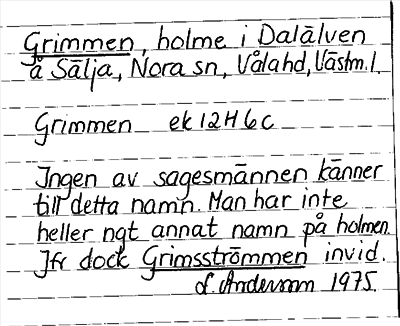 Grimmen, holme i Dalälven
å Sälja, Nora sn, Våla hd, Västm. l.
Grimmen ek 12H6c
Ingen av sagesmännen känner
till detta namn. Man har inte
heller ngt annat namn på holmen.
Jfr dock Grimsströmmen invid.
L. Anderson 1975.